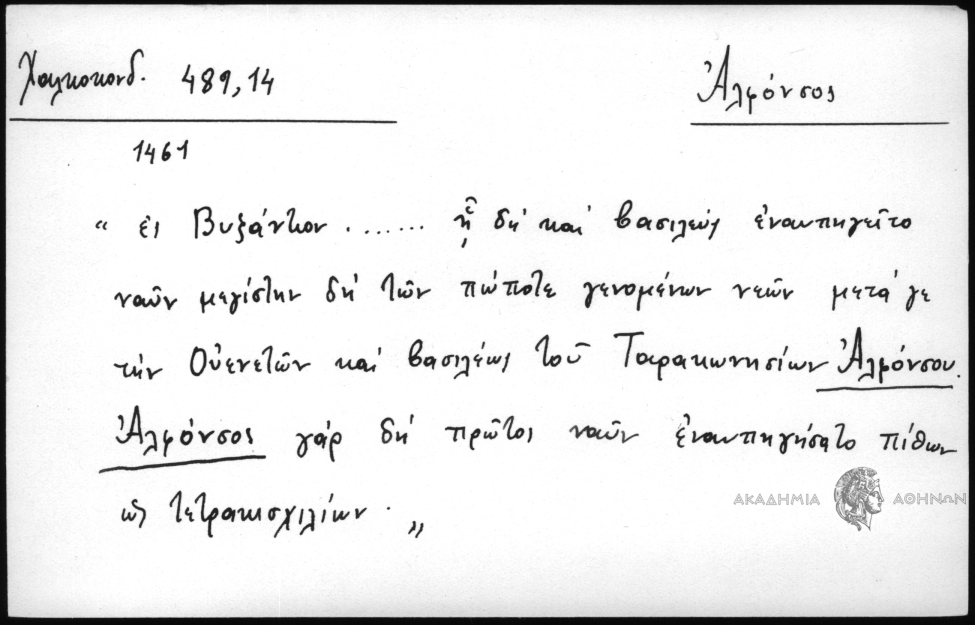 Χαλκοκονδ. 489,14
Ἀλφόνσος
1461
“ ἐς Βυζάντιον ....... ᾗ δὴ καὶ βασιλεὺς ἐναυπηγεῖτο
ναῦν μεγίστην δὴ τῶν πώποτε γενομένων νεῶν μετά γε
τὴν Οὐενετῶν καὶ βασιλέως τοῦ Ταρακωνησίων Ἀλφόνσου.
Ἀλφόνσος γὰρ δὴ πρῶτος ναῦν ἐναυπηγήσατο πίθων
ὡς τετρακισχιλίων. „
ΑΚΑΔΗΜΙΑ ΑΘΗΝΩΝ